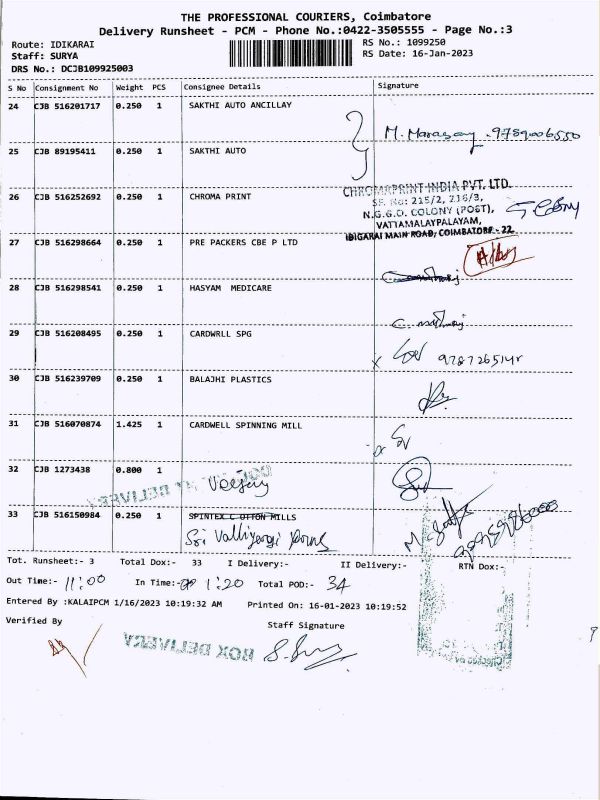 THE PROFESSIONAL COURIERS, Coimbatore
Delivery Runsheet - PCM - Phone No.:0422-3505555 - Page No.:3
Route: IDIKARAI RS No.: 1099250
Staff: SURYA RS Date: 16-Jan-2023
DRS No.: DCJB109925003
S No Consignment No Weight PCS Consignee Details Signature
24 CJB 516201717 0.250 1 SAKTHI AUTO ANCILLAY
9789006550
25 CJB 89195411 0.250 1 SAKTHI AUTO
26 CJB 516252692 0.250 1 CHROMA PRINT
CHROMAPRINT INDIA PVT. LTD.
SF. No: 215/2, 216/3,
N.G.G.O. COLONY (POST),
VATTAMALAYPALAYAM,
IDIGARAI MAIN ROAD, COIMBATORE - 22.
27 CJB 516298664 0.250 1 PRE PACKERS CBE P LTD
28 CJB 516298541 0.250 1 HASYAM MEDICARE
29 CJB 516208495 0.250 1 CARDWRLL SPG
30 CJB 516239709 0.250 1 BALAJHI PLASTICS
31 CJB 516070874 1.425 1 CARDWELL SPINNING MILL
32 CJB 1273438 0.800 1
BOX DELIVERY
33 CJB 516150984 0.250 1 SPINTEX C OTTON MILLS
Sri
Tot. Runsheet:- 3 Total Dox:- 33 I Delivery:- II Delivery:- RTN Dox:-
Out Time:- 11:00 In Time:- 1:20 Total POD:- 34
Entered By :KALAIPCM 1/16/2023 10:19:32 AM Printed On: 16-01-2023 10:19:52
Verified By Staff Signature
BOX DELIVERY